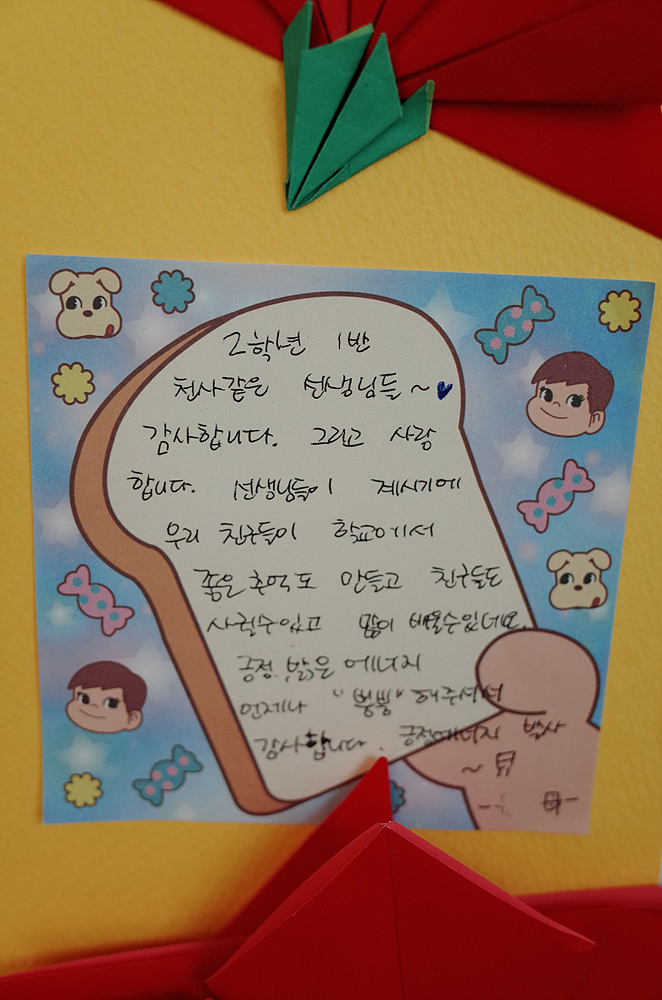 2학년 1반
천사같은 선생님들~♥
감사합니다. 그리고 사랑
합니다. 선생님들이 계시기에
우리 친구들이 학교에서
좋은 추억도 만들고 친구들도
사귈수있고 많이 배울수있네요.
긍정, 밝은 에너지
언제나 "뿜뿜" 해주셔서
감사합니다. 긍정에너지 발사
~